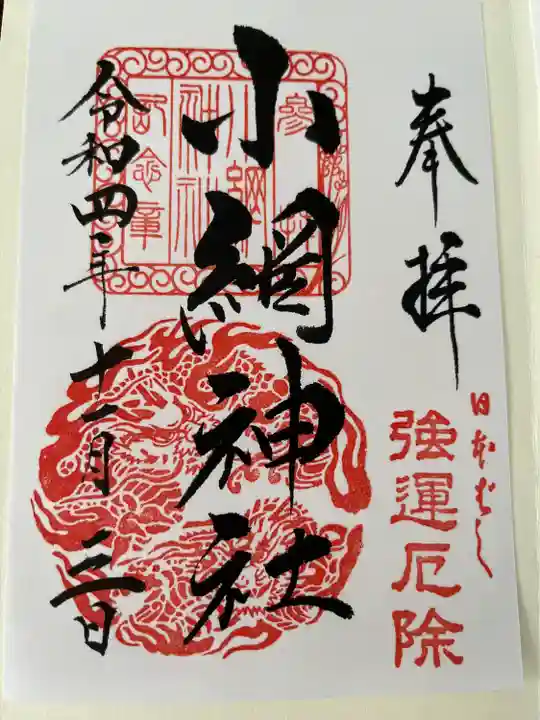 奉拝
日本ばし
強運厄除
小網神社
参拝
小網
神社
記念章
令和四年十一月三日